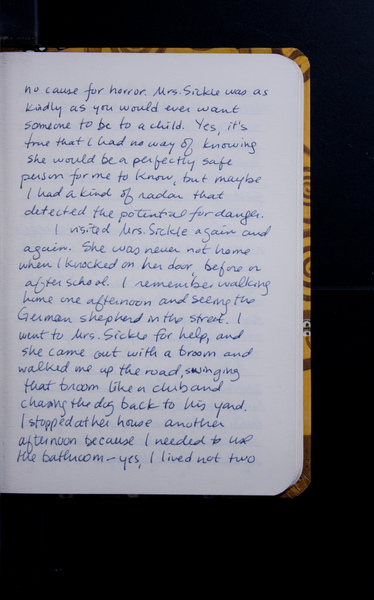 no cause for horror. Mrs. Sickle was as
kindly as you would ever want
someone to be to a child. Yes, it's
true that I had no way of knowing
she would be a perfectly safe
person for me to know, but maybe
I had a kind of radar that
detected the potential for danger.
I visited Mrs. Sickle again and
again. She was never not home
when I knocked on her door, before or
after school. I remember walking
home one afternoon and seeing the
German shepherd in the street. I
went to Mrs. Sickle for help, and
she came out with a broom and
walked me up the road, swinging
that broom like a club and
chasing the dog back to his yard.
I stopped at her house another
afternoon because I needed to use
the bathroom – yes, I lived not two